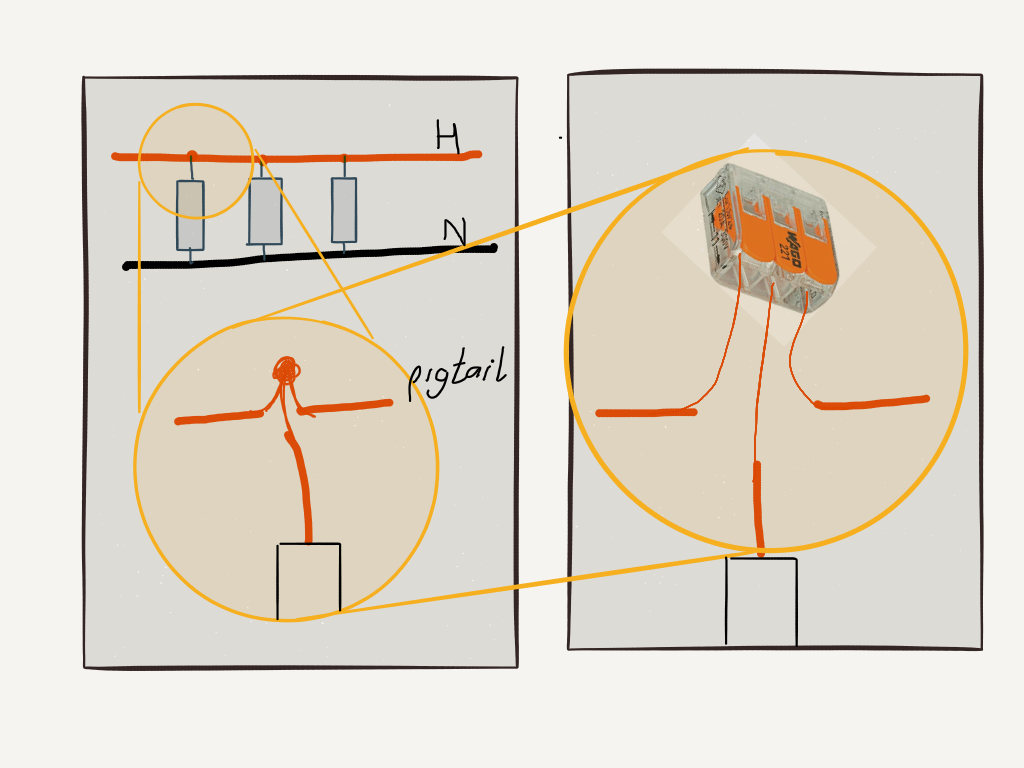 H
N
pigtail
WAGO
221